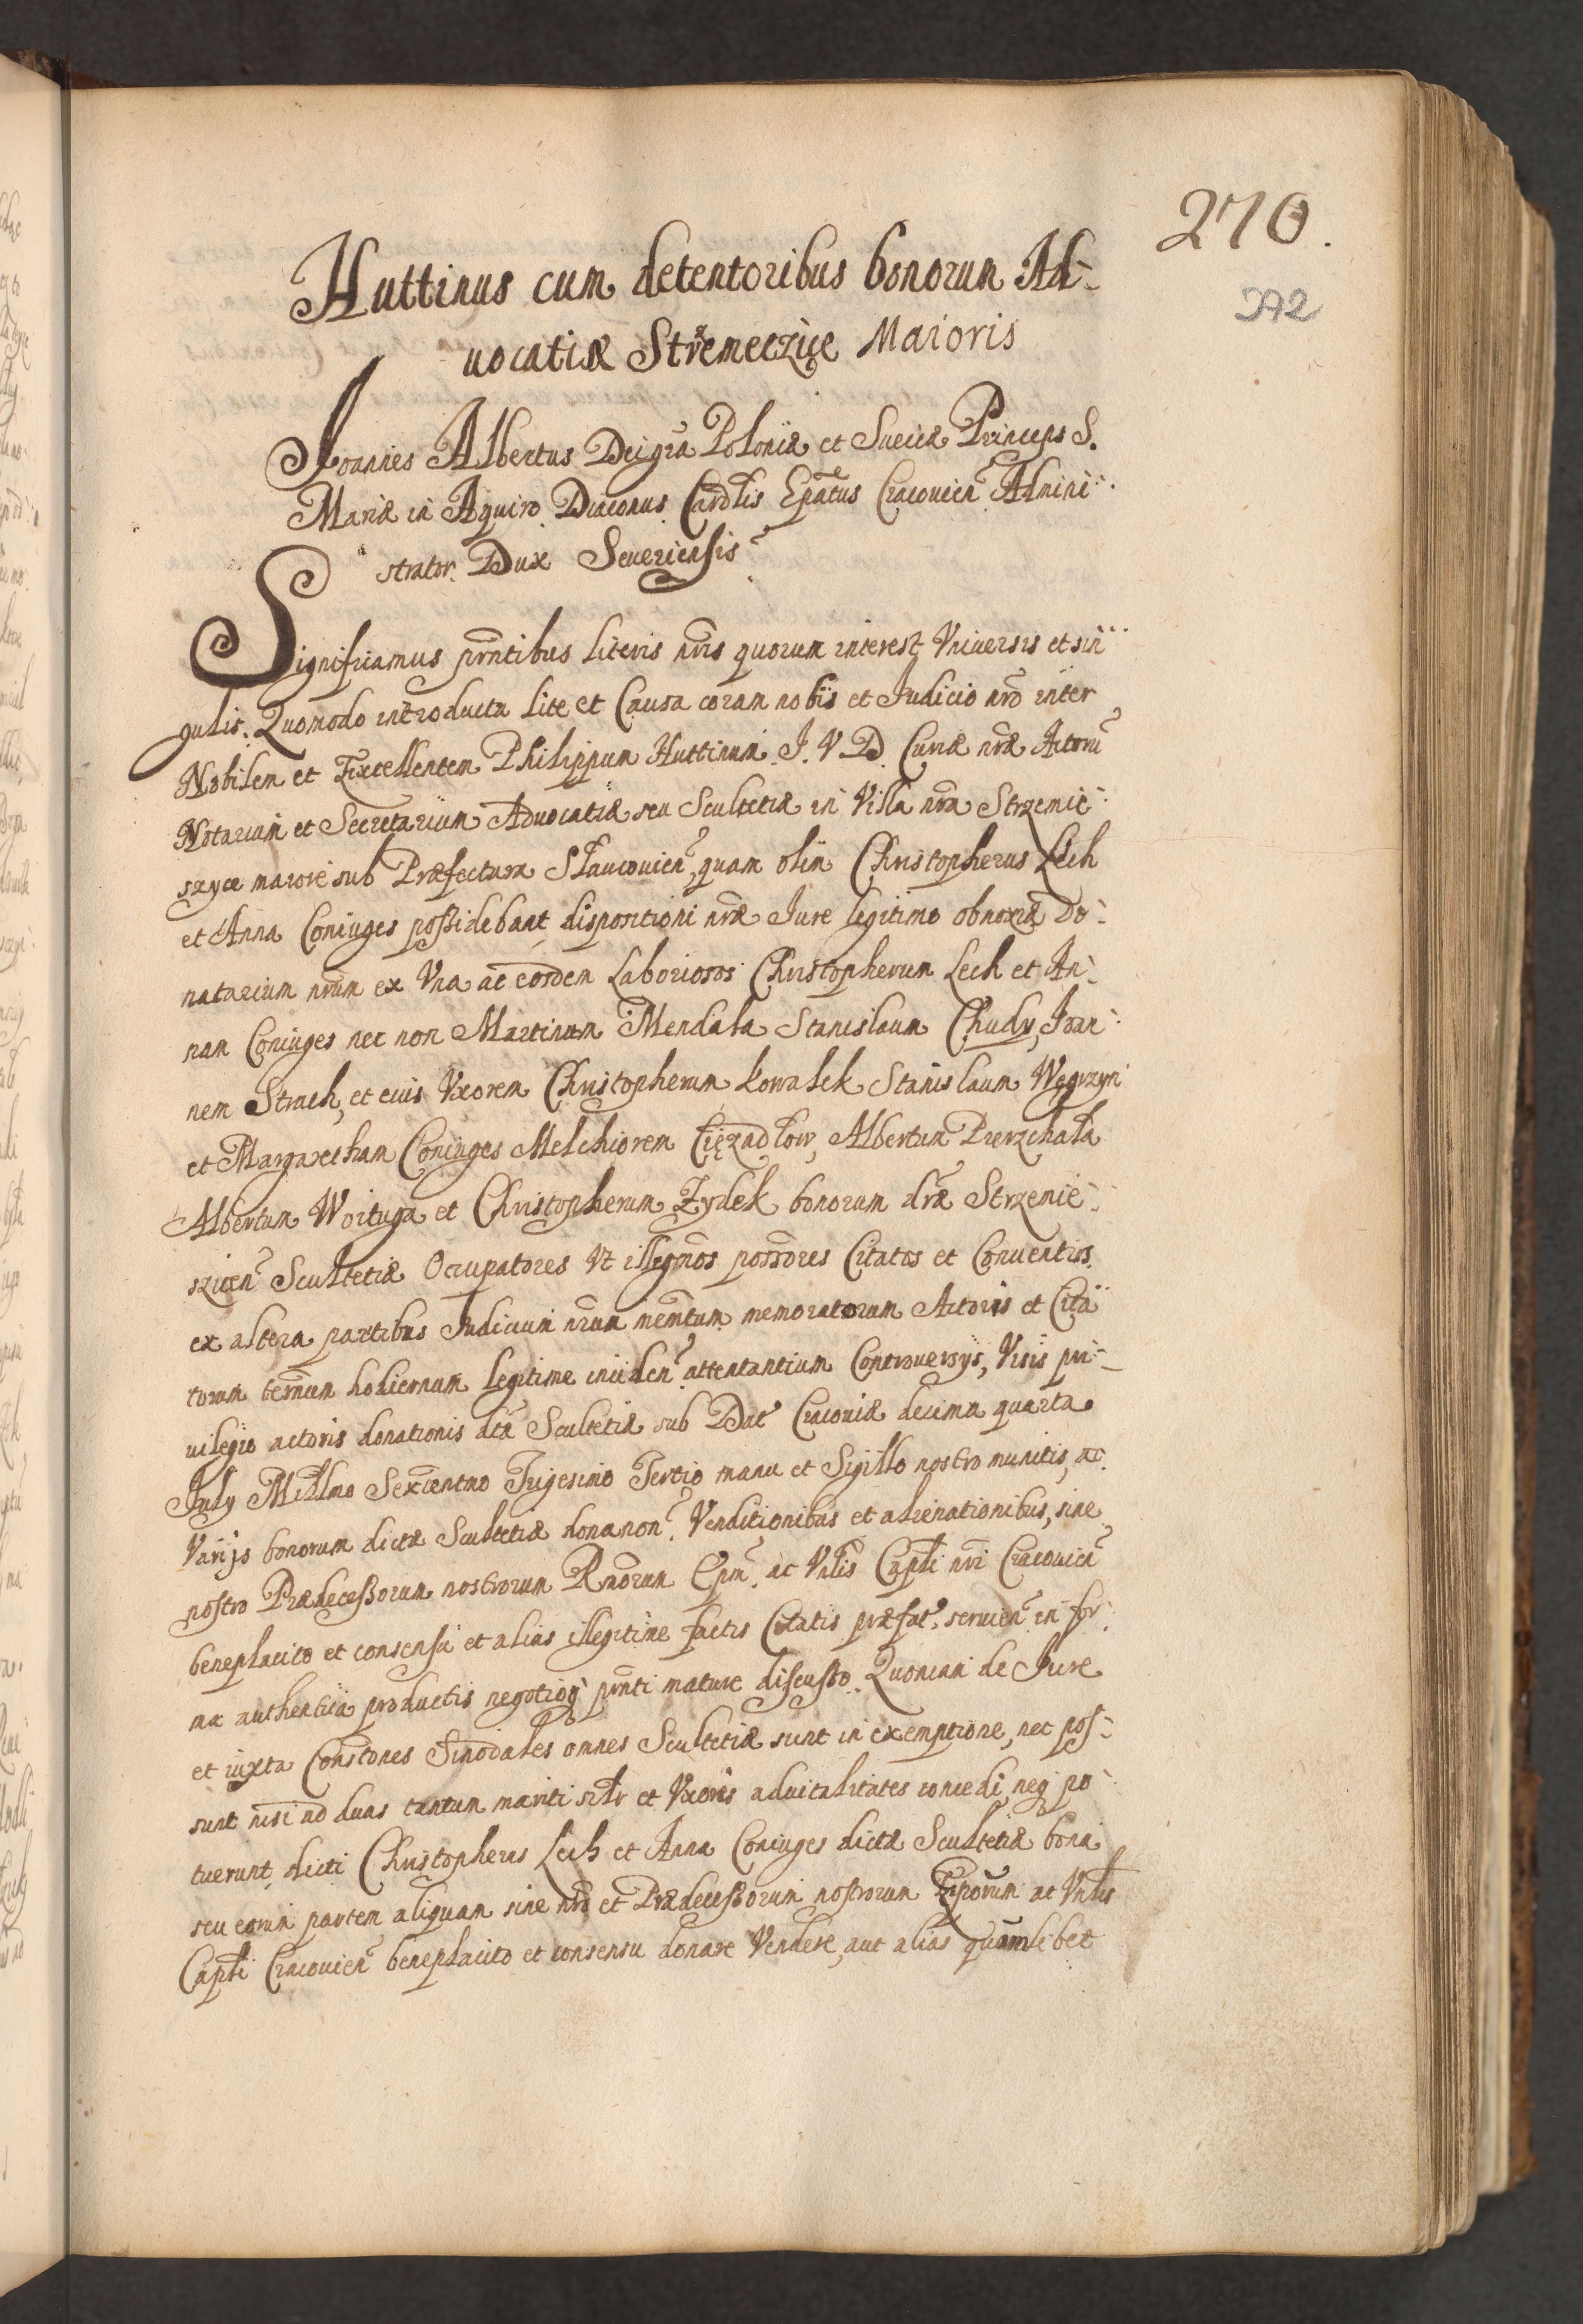 270.
272
Huttinus cum detentoribus bonorum Ad-
uocatiæ Stremeczice Maioris
Joannes Albertus Dei gra͞ Poloniæ et Sueciæ Princeps S.
Mariæ in Aquiro Diaconus Card͞lis Ep͞atus Cracouien͞ Admini-
strator. Dux Seueriensis
Significamus pr͞ntibus literis nr͞is quorum interest Vniuersis et sin-
gulis. Quomodo introducta lite et Causa coram nobis et Judicio nr͞o inter
Nobilem et Excellentem Philippum Huttinum. J. V. D. Curiæ nr͞æ Actoru͞
Notarium et Secretarium Aduocatiæ seu Scultetiæ in Villa nr͞a Strzemie-
szyce maiore sub Præfectura Slaucouien͞, quam olim Christopherus Lech
et Anna Coniuges possidebant dispositioni nr͞æ Jure legitimo obnoxiæ Do-
natarium nr͞um ex Vna ac eosdem Laboriosos Christopherum Lech et An-
nam Coniuges nec non Martinum Mendala Stanislaum Chudy, Joan-
nem Strach, et eius Vxorem Christopherum Kowalek Stanislaum Węgrzyn
et Margaretham Coniuges Melchiorem Ciężadłow, Albertum Pierzchała
Albertum Woituga et Christopherum Zydek bonorum d͞ræ Strzemie-
szicen͞ Scultetiæ Occupatores Vt illegm͞os poss͞ores Citatos et Conuentos
ex altera partibus Judicium nr͞um mem͞tum memoratorum Actoris et Cita-
torum ter͞num hodiernum legitime inciden͞ attentantium Controuersys, Visis pri-
uilegio actoris donationis d͞tæ Scultetiæ sub Dat͞ Cracouiæ decima quarta
July Mill͞mo Sexcent͞mo Trigesimo Tertio manu et Sigillo nostro munitis, ac
Varijs bonorum dictæ Scultetiæ donanon͞. Venditionibus et alienationibus, sine
nostro Prædecessorum nostrorum R͞ndorum Ep͞m. ac Vn͞lis Cap͞li nr͞i Cracouien͞
beneplacito et consensu et alias illegitime factis Citatis præfat͞, seruien͞ in for-
ma authentica productis negotioq̃ pr͞nti mature discusso. Quoniam de Jure
et iuxta Const͞ones Sinodales omnes Scultetiæ sunt in exemptione, nec pos-
sunt nisi ad duas tantum mariti sc͞lt et Vxoris aduitalitates concedi, neq̃ po-
tuerunt dicti Christopherus Lech et Anna Coniuges dictæ Scultetiæ bona
seu eorum partem aliquam sine nr͞o et Prædecessorum nostrorum Ep͞porum ac Vn͞lis
Cap͞li Cracouien͞ beneplacito et consensu donare Vendere, aut alias quomlibet